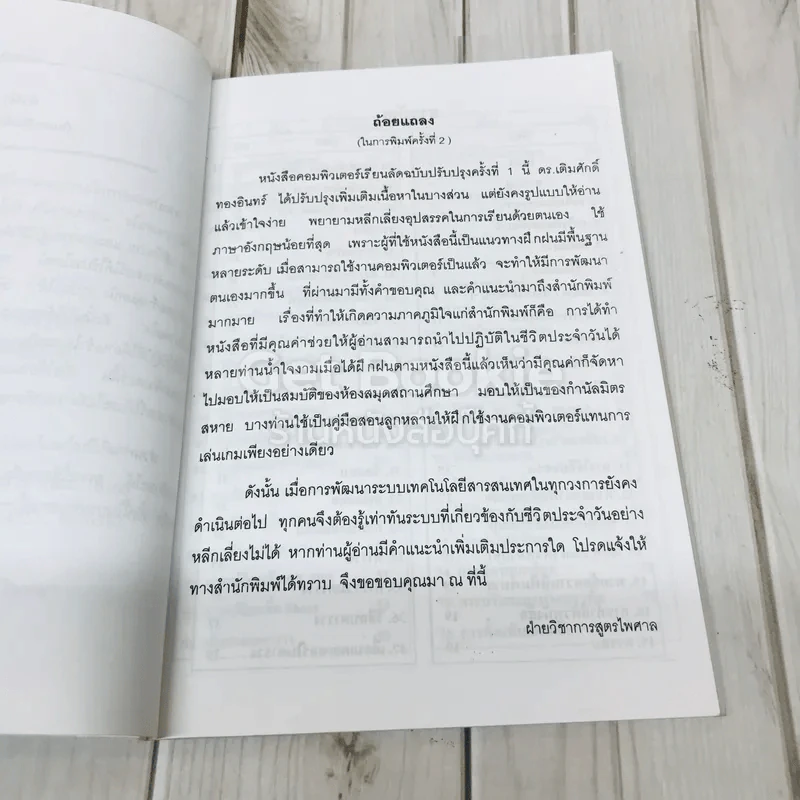 ถ้อยแถลง
(ในการพิมพ์ครั้งที่ 2)
หนังสือคอมพิวเตอร์เรียนลัดฉบับปรับปรุงครั้งที่ 1 นี้ ดร.เติมศักดิ์
ทองอินทร์ ได้ปรับปรุงเพิ่มเติมเนื้อหาในบางส่วน แต่ยังคงรูปแบบให้อ่าน
แล้วเข้าใจง่าย พยายามหลีกเลี่ยงอุปสรรคในการเรียนด้วยตนเอง ใช้
ภาษาอังกฤษน้อยที่สุด เพราะผู้ที่ใช้หนังสือนี้เป็นแนวทางฝึกฝนมีพื้นฐาน
หลายระดับ เมื่อสามารถใช้งานคอมพิวเตอร์เป็นแล้ว จะทำให้มีการพัฒนา
ตนเองมากขึ้น ที่ผ่านมามีทั้งคำขอบคุณ และคำแนะนำมาถึงสำนักพิมพ์
มากมาย เรื่องที่ทำให้เกิดความภาคภูมิใจแก่สำนักพิมพ์ก็คือ การได้ทำ
หนังสือที่มีคุณค่าช่วยให้ผู้อ่านสามารถนำไปปฏิบัติในชีวิตประจำวันได้
หลายท่านน้ำใจงามเมื่อได้ฝึกฝนตามหนังสือนี้แล้วเห็นว่ามีคุณค่าก็จัดหา
ไปมอบให้เป็นสมบัติของห้องสมุดสถานศึกษา มอบให้เป็นของกำนัลมิตร
สหาย บางท่านใช้เป็นคู่มือสอนลูกหลานให้ฝึกใช้งานคอมพิวเตอร์แทนการ
เล่นเกมเพียงอย่างเดียว
ดังนั้น เมื่อการพัฒนาระบบเทคโนโลยีสารสนเทศในทุกวงการยังคง
ดำเนินต่อไป ทุกคนจึงต้องรู้เท่าทันระบบที่เกี่ยวข้องกับชีวิตประจำวันอย่าง
หลีกเลี่ยงไม่ได้ หากท่านผู้อ่านมีคำแนะนำเพิ่มเติมประการใด โปรดแจ้งให้
ทางสำนักพิมพ์ได้ทราบ จึงขอขอบคุณมา ณ ที่นี้
ฝ่ายวิชาการสูตรไพศาล